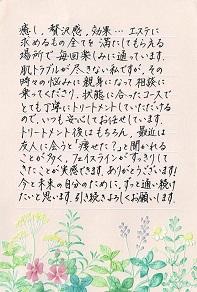 癒し、贅沢感、効果… エステに
求めるもの全てを満たしてもらえる
場所で毎回楽しみに通っています。
肌トラブルが尽きない私ですが、その
時々の悩みに親身になって相談に
乗ってくださり、状態に合ったコースで
とても丁寧にトリートメントしていただける
ので、いつも安心してお任せしています。
トリートメント後はもちろん、最近は
友人に会うと"痩せた?"と聞かれる
ことが多く、フェイスラインがすっきりして
きたことが実感できます。ありがとうございます!
今と未来の自分のために、ずっと通い続け
たいと思います。引き続きよろしくお願いします。